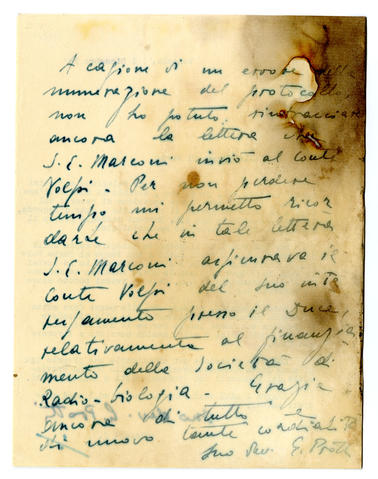 A cagione di un errore nella
numerazione del protocollo
non ho potuto rintracciare
ancora la lettera che
S. E. Marconi inviò al conte
Volpi - Per non perdere
tempo mi permetto ricor
darle che in tale lettera
S. E. Marconi il
Conte Volpi del suo inte
ressamento presso il Duce,
relativamente al finanzia
mento della Società di
Radio-biologia - Grazie
ancora di tutto e
di nuovo tante cordialità
Suo dev. G.